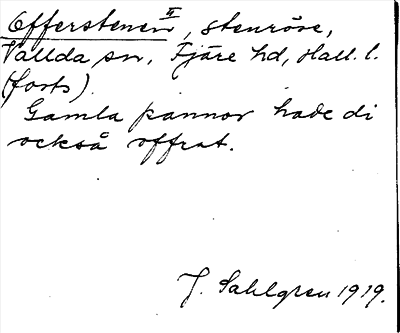 Offerstenen II, stenröse,
Vallda sn, Fjäre hd, Hall. l.
(forts)
Gamla pannor hade di
också offrat.
J. Sahlgren 1919.